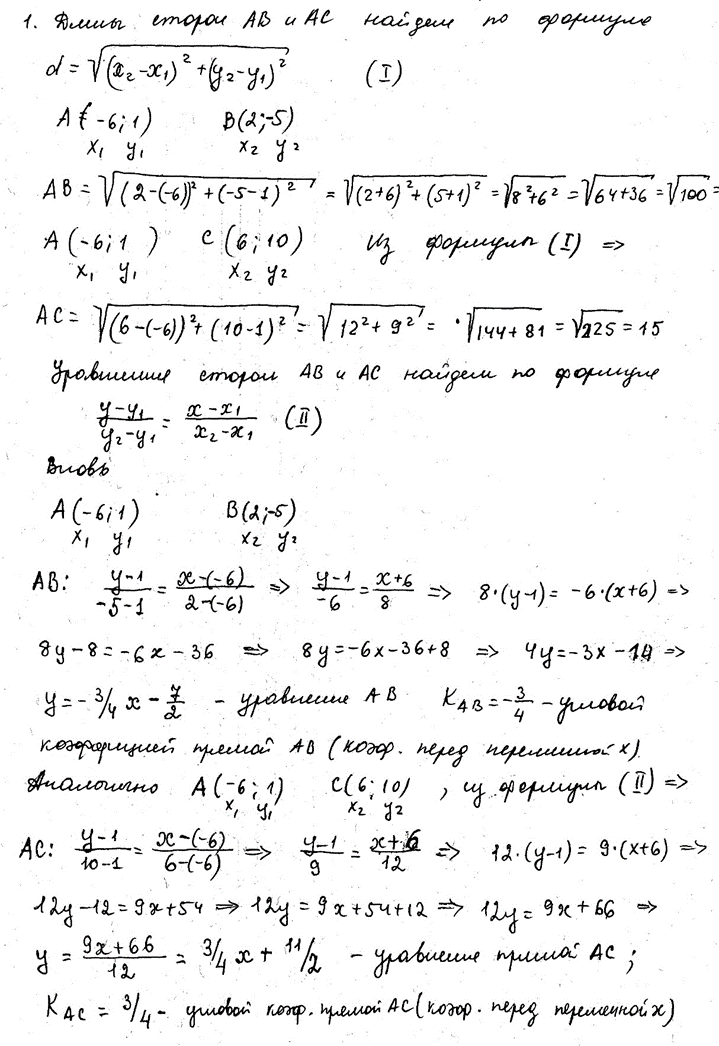 1. Длины сторон АВ и АС найдем по формуле
d = √((x₂-x₁)² + (y₂-y₁)²) (I)
A(-6; 1) B(2; -5)
x₁ y₁ x₂ y₂
AB = √((2-(-6))² + (-5-1)²) = √((2+6)² + (5+1)²) = √(8²+6²) = √(64+36) = √100 =
A(-6; 1) C(6; 10) Из формулы (I) =>
x₁ y₁ x₂ y₂
AC = √((6-(-6))² + (10-1)²) = √(12² + 9²) = √(144+81) = √225 = 15
Уравнение сторон АВ и АС найдем по формуле
(y-y₁)/(y₂-y₁) = (x-x₁)/(x₂-x₁) (II)
Вновь
A(-6; 1) B(2; -5)
x₁ y₁ x₂ y₂
AB: (y-1)/(-5-1) = (x-(-6))/(2-(-6)) => (y-1)/(-6) = (x+6)/8 => 8·(y-1) = -6·(x+6) =>
8y-8 = -6x-36 => 8y = -6x-36+8 => 4y = -3x-14 =>
y = -3/4 x - 7/2 - уравнение АВ K_AB = -3/4 - угловой
коэффициент прямой АВ (коэф. перед переменной x)
Аналогично A(-6; 1) C(6; 10), из формулы (II) =>
x₁ y₁ x₂ y₂
AC: (y-1)/(10-1) = (x-(-6))/(6-(-6)) => (y-1)/9 = (x+6)/12 => 12·(y-1) = 9·(x+6) =>
12y-12 = 9x+54 => 12y = 9x+54+12 => 12y = 9x+66 =>
y = (9x+66)/12 = 3/4 x + 11/2 - уравнение прямой АС;
K_AC = 3/4 - угловой коэф. прямой АС (коэф. перед переменной x)